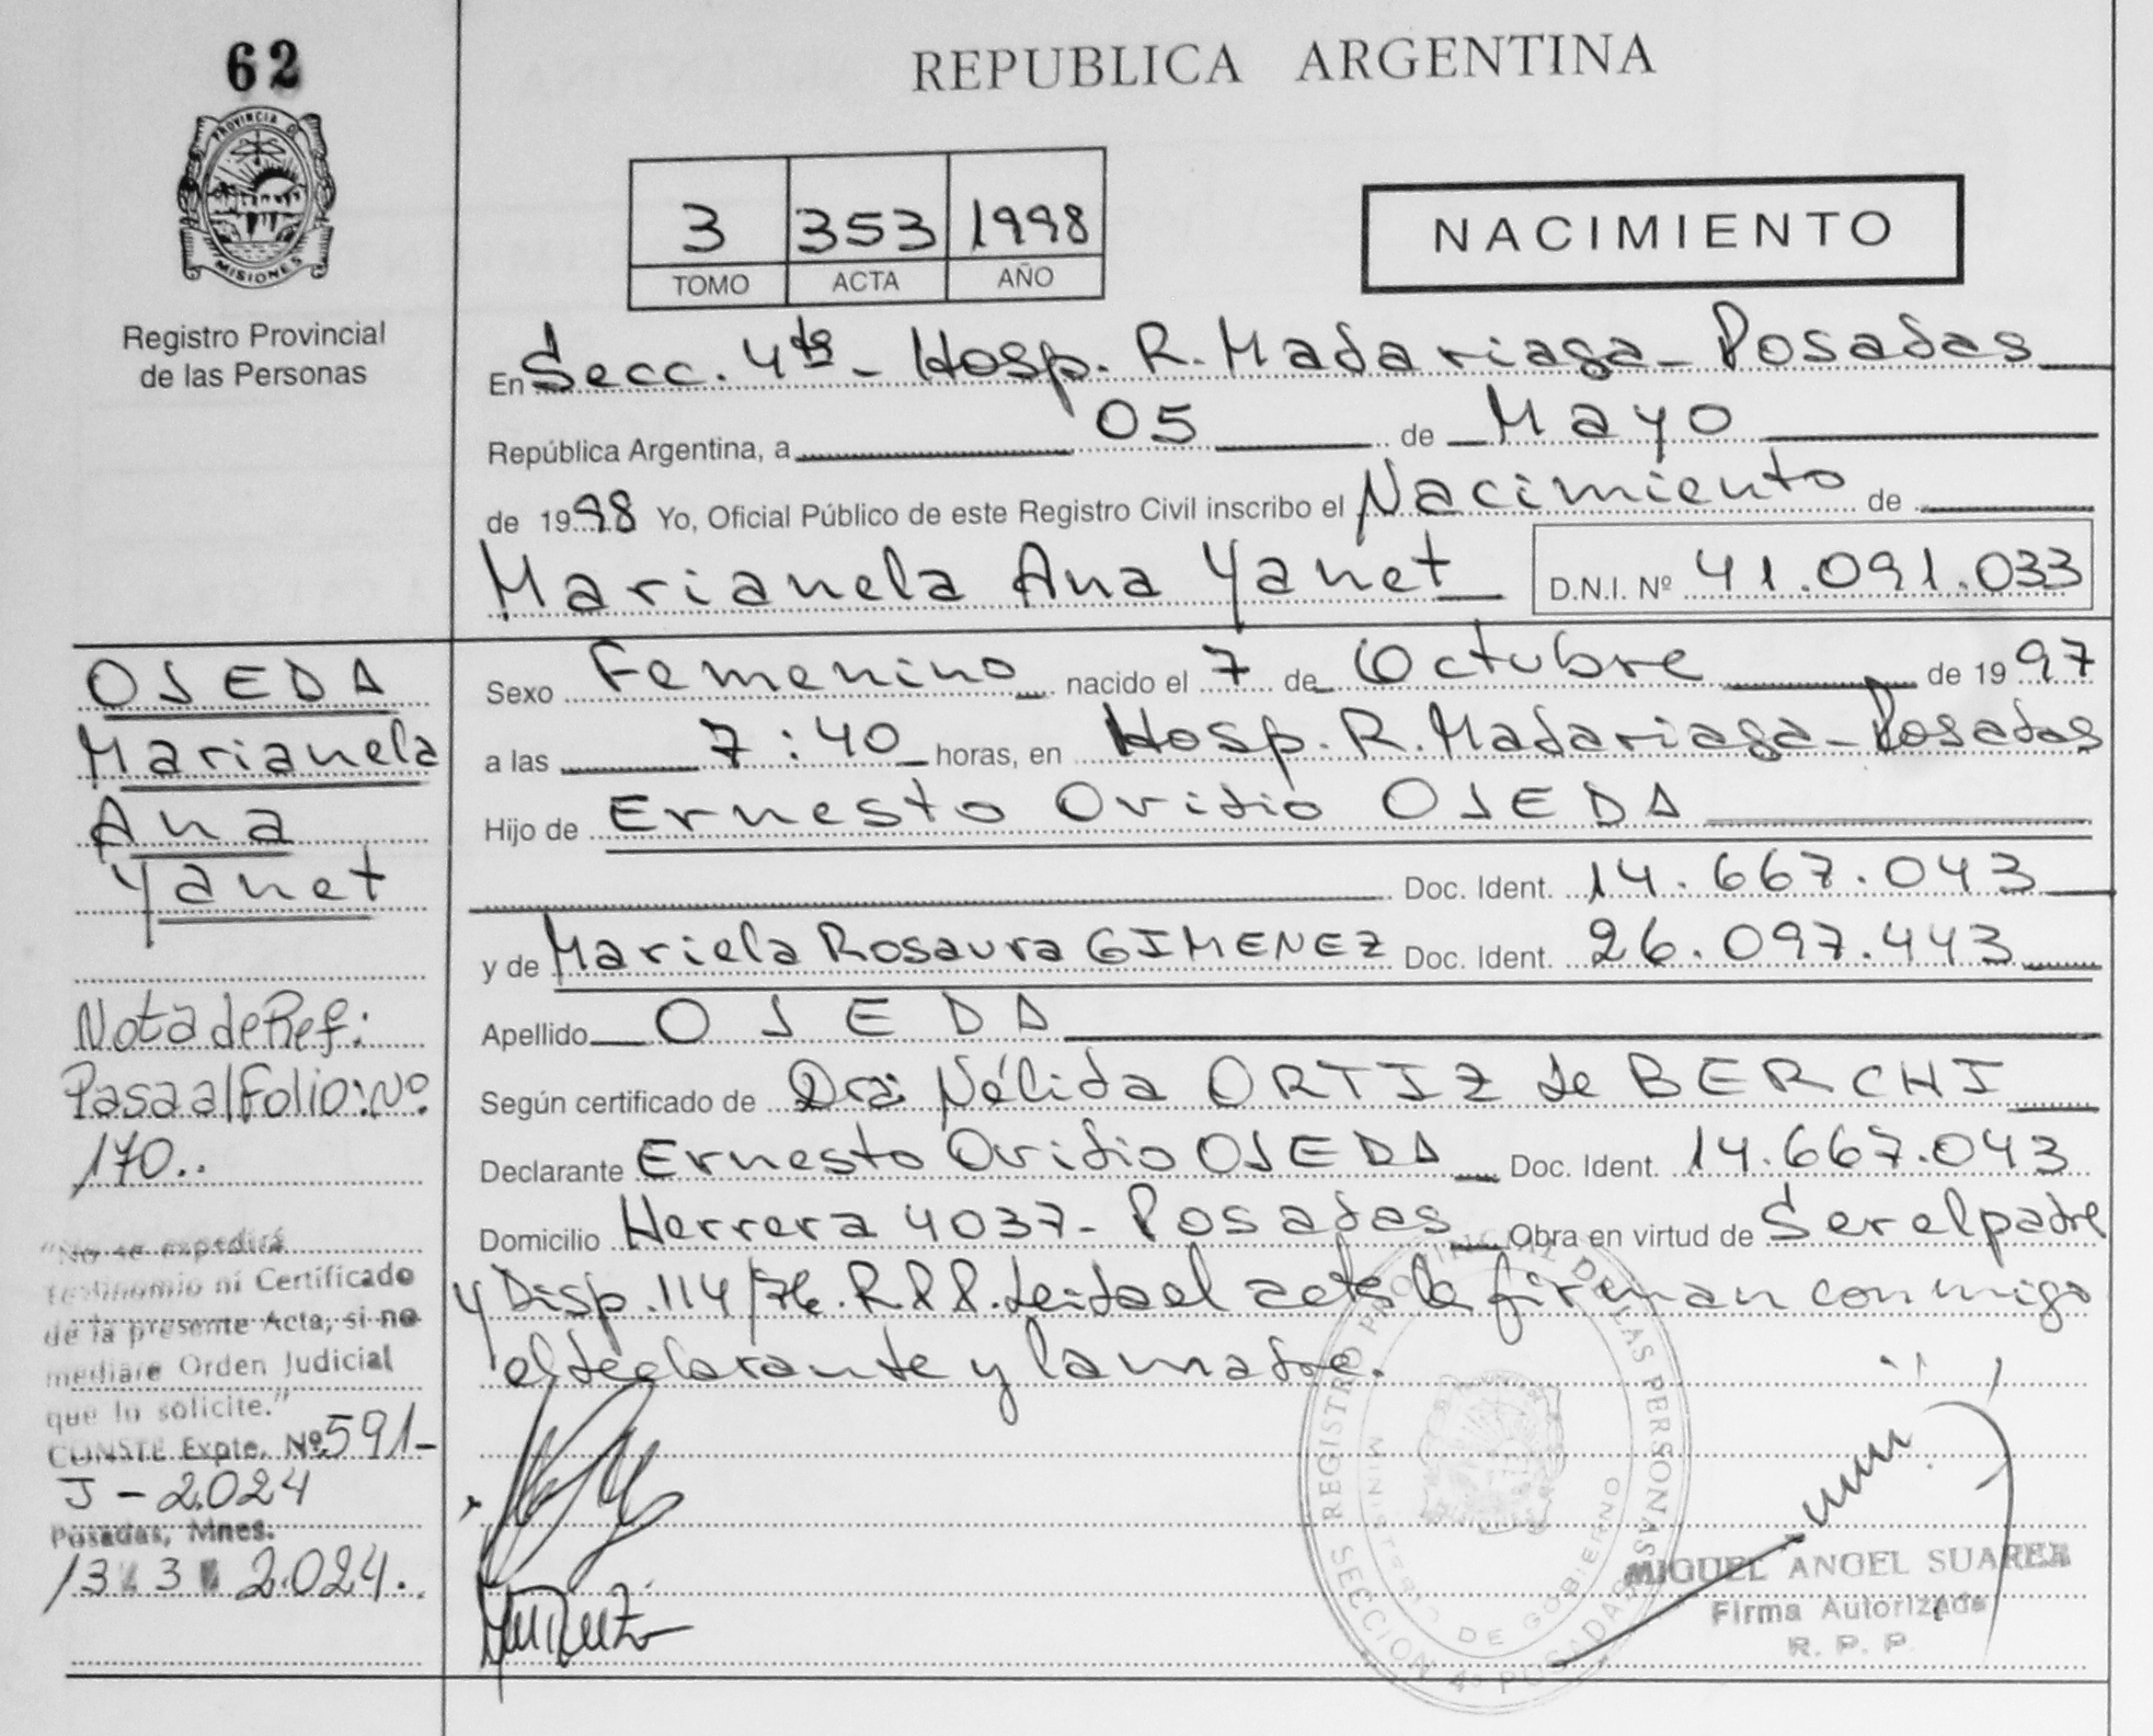 62
PROVINCIA DE
MISIONES
Registro Provincial
de las Personas
REPUBLICA ARGENTINA
3 353 1998
TOMO ACTA AÑO
NACIMIENTO
En Secc. 4ta - Hosp. R. Madariaga - Posadas
República Argentina, a 05 de Mayo
de 1998 Yo, Oficial Público de este Registro Civil inscribo el Nacimiento de
Marianela Ana Yanet D.N.I. Nº 41.091.033
Sexo Femenino nacido el 7 de Octubre de 1997
a las 7:40 horas, en Hosp. R. Madariaga - Posadas
Hijo de Ernesto Ovidio OJEDA
Doc. Ident. 14.667.043
y de Mariela Rosaura GIMENEZ Doc. Ident. 26.097.443
Apellido OJEDA
Según certificado de Dra: Nélida ORTIZ de BERCHI
Declarante Ernesto Ovidio OJEDA Doc. Ident. 14.667.043
Domicilio Herrera 4037 - Posadas Obra en virtud de Ser el padre
y Disp. 114/76. R.P.P. Leida el acta la firman conmigo
el declarante y la madre.
OJEDA
Marianela
Ana
Yanet
Nota de Ref:
Pasa al Folio: Nº
170..
"No se expedirá
Testimonio ni Certificado
de la presente Acta, si no
mediare Orden Judicial
que lo solicite."
CONSTE Expte. Nº 591-
J - 2.024
Posadas, Mnes.
13 3 2.024.
REGISTRO PROVINCIAL DE LAS PERSONAS
MINISTERIO DE GOBIERNO
SECCION 4ª POSADAS
MIGUEL ANGEL SUAREZ
Firma Autorizada
R. P. P.